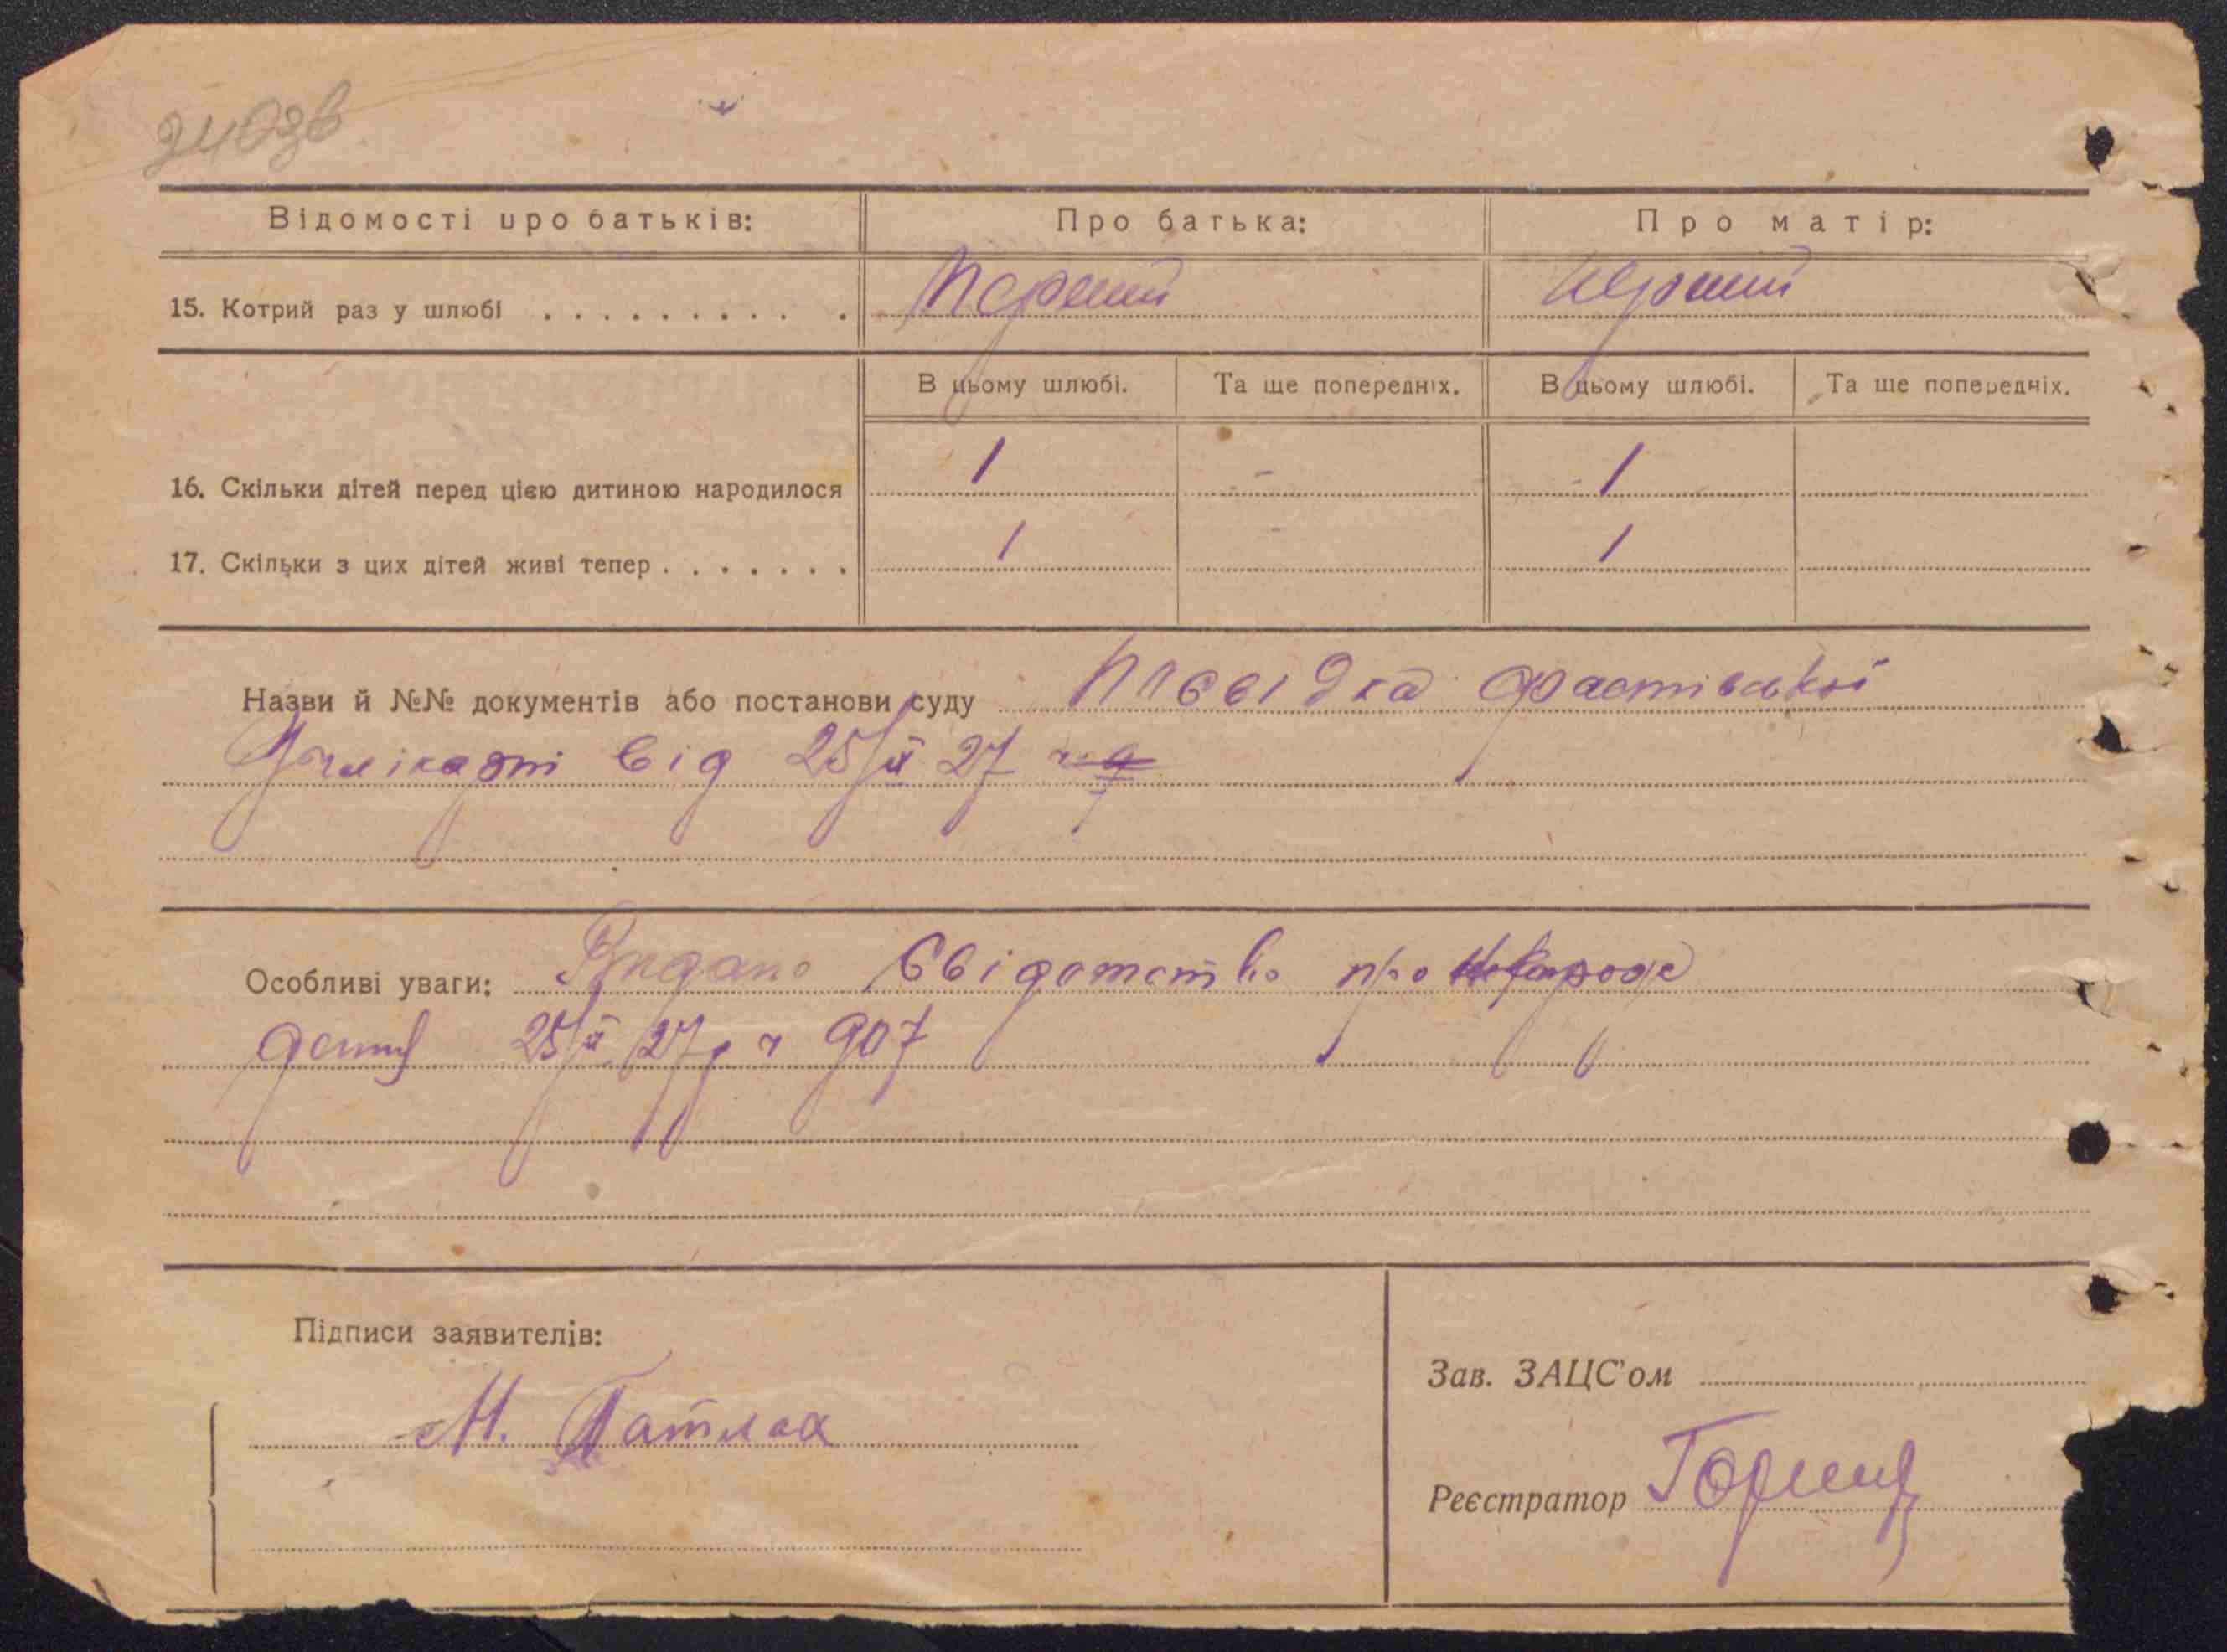 Відомості про батьків: Про батька: Про матір:
15. Котрий раз у шлюбі . . . . . . . . . . . Перший Перший
В цьому шлюбі. Та ще попередніх. В цьому шлюбі. Та ще попередніх.
16. Скільки дітей перед цією дитиною народилося 1 - 1
17. Скільки з цих дітей живі тепер . . . . . . . 1 - 1
Назви й №№ документів або постанови суду Посвідка Фастівської
від 25/ІХ 27
Особливі уваги: Видано Свідотство про
25/ІХ 27р ч 907
Підписи заявителів:
Зав. ЗАЦС'ом
М. Патлах
Реєстратор